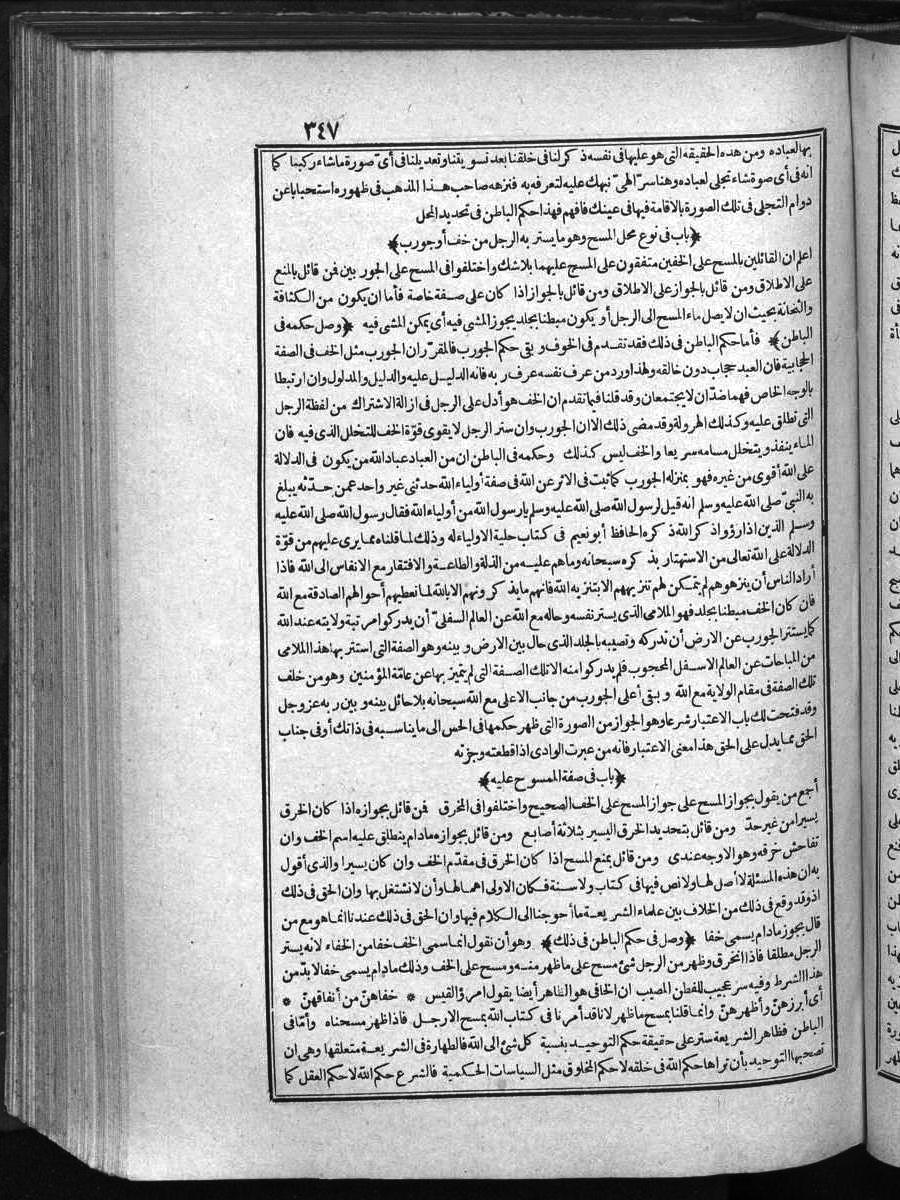 ٣٤٧
بها لعباده ومن هذه الحقيقه التى هو عليها فى نفسه ذكر لنا فى خلقنا بعد تسويتنا وتعديلنا فى أىّ صورة ما شاء ركبنا كما
انه فى أى صوة شاء تجلى لعباده وهنا سرّ الهىّ نبهك عليه لتعرفه به فنزهه صاحب هذا المذهب فى ظهوره استحبابا عن
دوام التجلى فى تلك الصورة بالاقامة فيها فى عينك فافهم فهذا حكم الباطن فى تحديد المحل
﴿باب فى نوع محل المسح وهو ما يستر به الرجل من خف أو جورب﴾
اعلم ان القائلين بالمسح على الخفين متفقون على المسح عليهما بلا شك واختلفوا فى المسح على الجوربين فمن قائل بالمنع
على الاطلاق ومن قائل بالجواز على الاطلاق ومن قائل بالجواز اذا كان على صفة خاصة فأما ان يكون من الكثافة
والثخانة بحيث ان لا يصل ماء المسح الى الرجل أو يكون مبطنا بجلد يجوز المشى فيه أى يمكن المشى فيه ﴿وصل حكمه فى
الباطن﴾ فأما حكم الباطن فى ذلك فقد تقدم فى الخوف وبقى حكم الجورب فالمقرّر ان الجورب مثل الخف فى الصفة
الحجابية فان العبد حجاب دون خالقه ولهذا ورد من عرف نفسه عرف ربه فانه الدليل عليه والدليل والمدلول وان ارتبطا
بالوجه الخاص فهما ضدّان لا يجتمعان وقد قلنا فيما تقدم ان الخف هو أدل على الرجل فى ازالة الاشتراك من لفظة الرجل
التى تطلق عليه وكذلك الهرولة وقد مضى ذلك الا ان الجورب وان ستر الرجل لا يقوى قوّة الخف للتخلل الذى فيه فان
الماء ينفذ ويتخلل مسامه سريعا والخف ليس كذلك وحكمه فى الباطن ان من العباد عباد الله من يكون فى الدلالة
على الله أقوى من غيره فهو بمنزله الجورب كما ثبت فى الاثر عن الله فى صفة أولياء الله حدثنى غير واحد عمن حدّثه يبلغ
به النبىّ صلى الله عليه وسلم انه قيل لرسول الله صلى الله عليه وسلم يا رسول الله من أولياء الله فقال رسول الله صلى الله عليه
وسلم الذين اذا رؤوا ذكر الله ذكره الحافظ أبو نعيم فى كتاب حلية الاولياء له وذلك لما قلناه مما يرى عليهم من قوّة
الدلالة على الله تعالى من الاستهتار بذكره سبحانه وما هم عليه من الذلة والطاعة والافتقار مع الانفاس الى الله فاذا
أراد الناس أن ينزهوهم لم يتمكن لهم تنزيههم الا بتنزيه الله فانهم ما يذكرونهم الا بالله لما تعطيهم أحوالهم الصادقة مع الله
فان كان الخف مبطنا بجلد فهو الملامى الذى يستر نفسه وحاله مع الله عن العالم السفلىّ أن يدركوا مرتبة ولايته عند الله
كما يستتر الجورب عن الارض أن تدركه وتصيبه بالجلد الذى حال بين الارض وبينه وهو الصفة التى استتر بها هذا الملامى
من المباحات عن العالم الاسفل المحجوب فلم يدركوا منه الا تلك الصفة التى لم يتميز بها عن عامّة المؤمنين وهو من خلف
تلك الصفة فى مقام الولاية مع الله وبقى أعلى الجورب من جانب الاعلى مع الله سبحانه بلا حائل بينه وبين ربه عز وجل
وقد فتحت لك باب الاعتبار شرعا وهو الجواز من الصورة التى ظهر حكمها فى الحس الى ما يناسبه فى ذاتك أو فى جناب
الحق مما يدل على الحق هذا معنى الاعتبار فانه من عبرت الوادى اذا قطعته وجزته
﴿باب فى صفة الممسوح عليه﴾
أجمع من يقول بجواز المسح على جواز المسح على الخف الصحيح واختلفوا فى المخرق فمن قائل بجوازه اذا كان الخرق
يسيرا من غير حدّ ومن قائل بتحديد الخرق اليسير بثلاثة أصابع ومن قائل بجوازه مادام ينطلق عليه اسم الخف وان
تفاحش خرقه وهو الاوجه عندى ومن قائل بمنع المسح اذا كان الخرق فى مقدّم الخف وان كان يسيرا والذى أقول
به ان هذه المسئلة لا أصل لها ولا نص فيها فى كتاب ولا سنة فكان الاولى اهمالها وأن لا نشتغل بها وان الحق فى ذلك
اذ وقد وقع فى ذلك من الخلاف بين علماء الشريعة ما أحوجنا الى الكلام فيها وان الحق فى ذلك عندنا انما هو مع من
قال يجوز مادام يسمى خفا ﴿وصل فى حكم الباطن فى ذلك﴾ وهو أن نقول انما سمى الخف خفا من الخفاء لانه يستر
الرجل مطلقا فاذا انخرق وظهر من الرجل شئ مسح على ما ظهر منه ومسح على الخف وذلك مادام يسمى خفا لابدّ من
هذا الشرط وفيه سر عجيب للفطن المصيب ان الخافى هو الظاهر أيضا يقول امرؤ القيس * خفاهنّ من أنفاقهنّ *
أى أبرزهنّ وأظهرهنّ وانما قلنا بمسح ما ظهر لانا قد أمرنا فى كتاب الله بمسح الارجل فاذا ظهر مسحناه وأمّا فى
الباطن فظاهر الشريعة ستر على حقيقة حكم التوحيد بنسبة كل شئ الى الله فالطهارة فى الشريعة متعلقها وهى ان
تصحبها التوحيد بأن تراها حكم الله فى خلقه لا حكم المخلوق مثل السياسات الحكمية فالشرع حكم الله لا حكم العقل كما